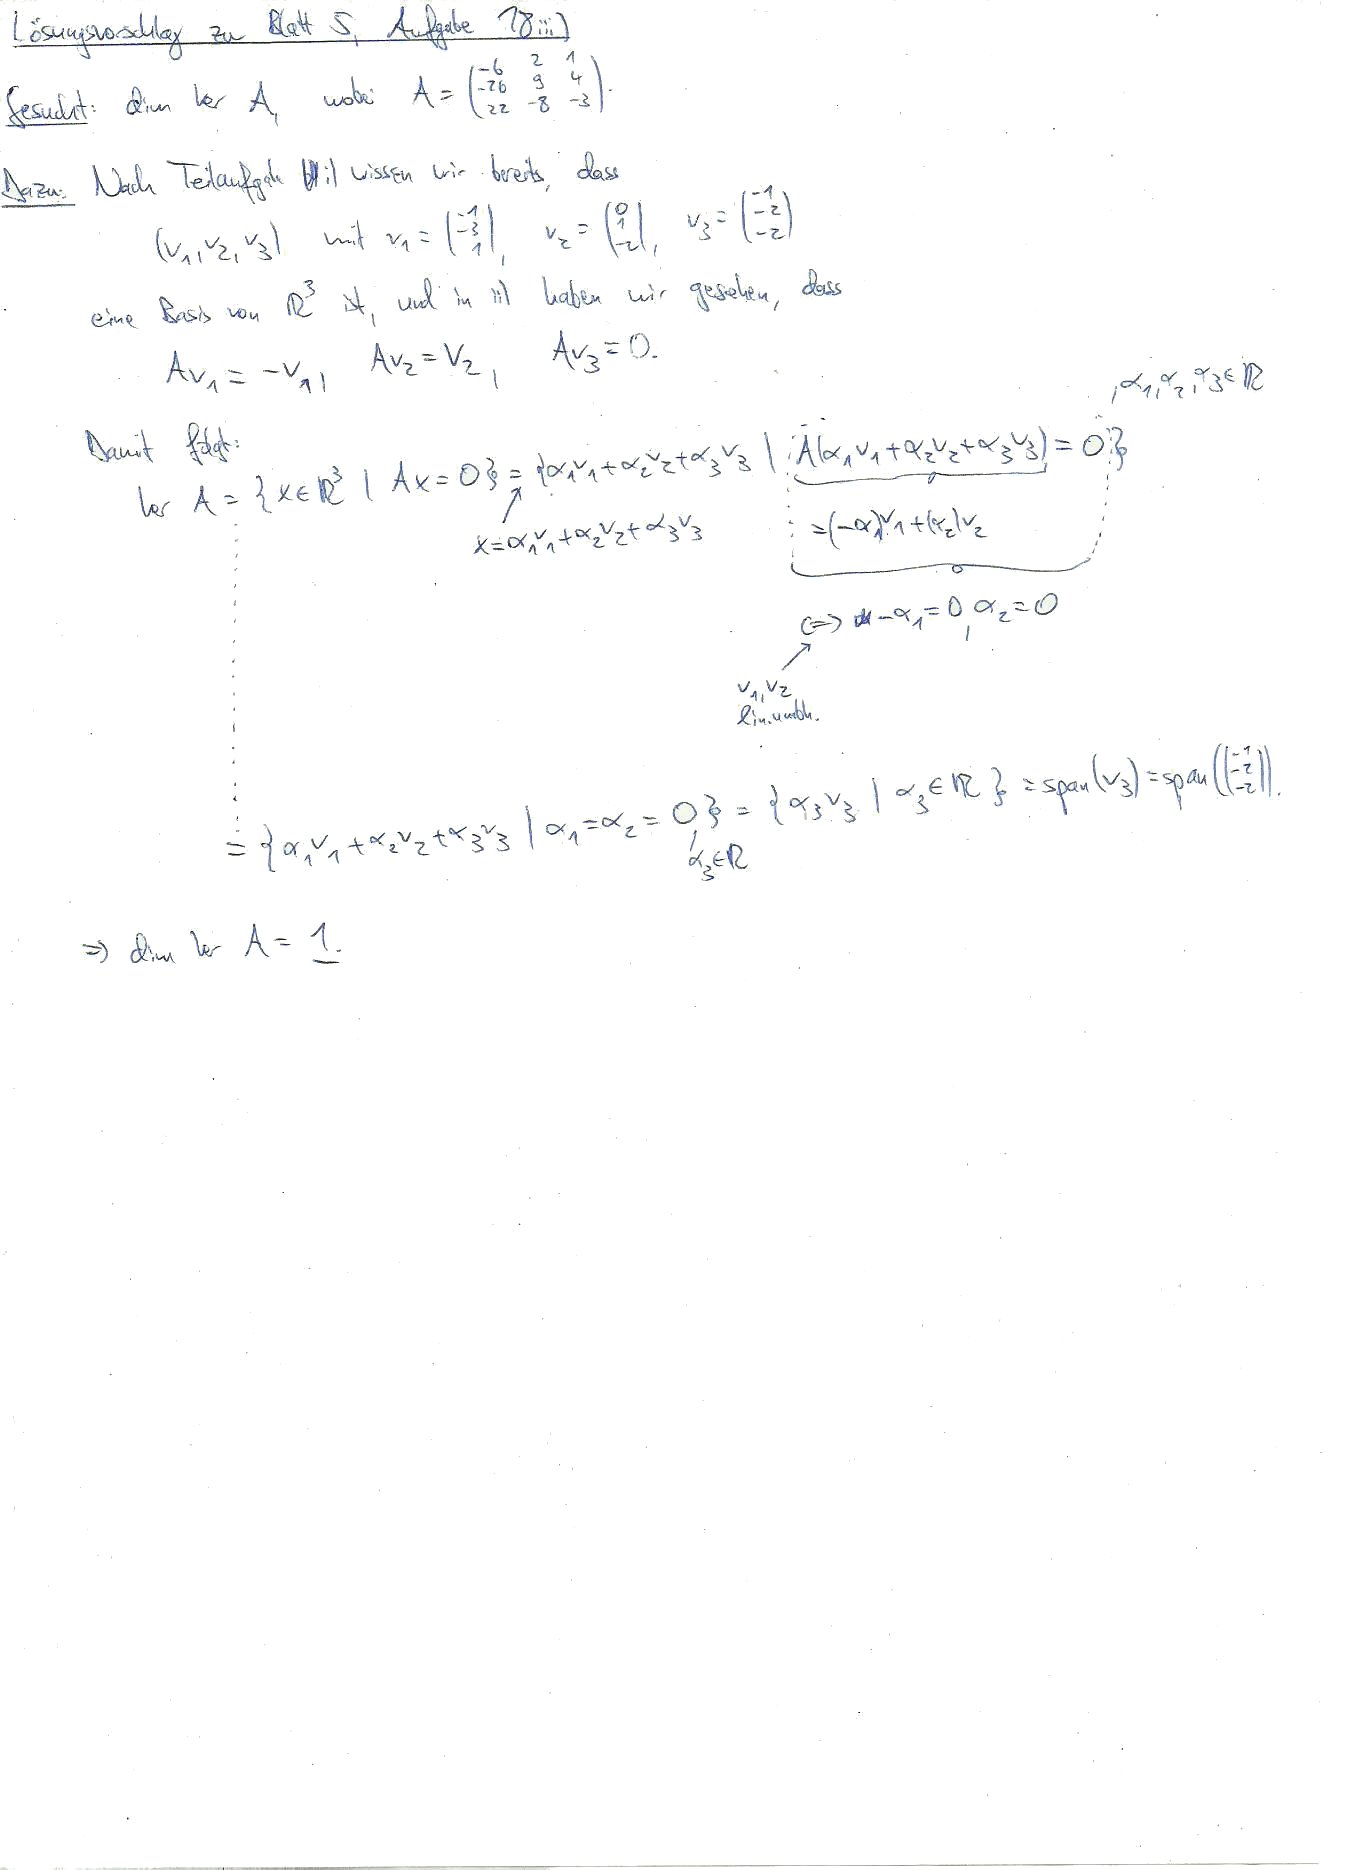 Lösungsvorschlag zu Blatt 5, Aufgabe 18iii)
Gesucht: dim ker A, wobei A = (-6 2 1; -26 9 4; 22 -8 -3).
Dazu: Nach Teilaufgabe i) wissen wir bereits, dass
(v₁, v₂, v₃) mit v₁ = (-1; -3; 1), v₂ = (0; 1; -2), v₃ = (-1; -2; -2)
eine Basis von ℝ³ ist, und in ii) haben wir gesehen, dass
Av₁ = -v₁, Av₂ = v₂, Av₃ = 0.
Damit folgt:
ker A = {x∈ℝ³ | Ax = 0} = {α₁v₁+α₂v₂+α₃v₃ | A(α₁v₁+α₂v₂+α₃v₃) = 0}
, α₁, α₂, α₃ ∈ ℝ
x = α₁v₁+α₂v₂+α₃v₃
= (-α₁)v₁+(α₂)v₂
⟺ -α₁ = 0, α₂ = 0
v₁, v₂
lin. unabh.
= {α₁v₁+α₂v₂+α₃v₃ | α₁=α₂ = 0, α₃∈ℝ} = {α₃v₃ | α₃∈ℝ} = span(v₃) = span((-1; -2; -2)).
⇒ dim ker A = 1.